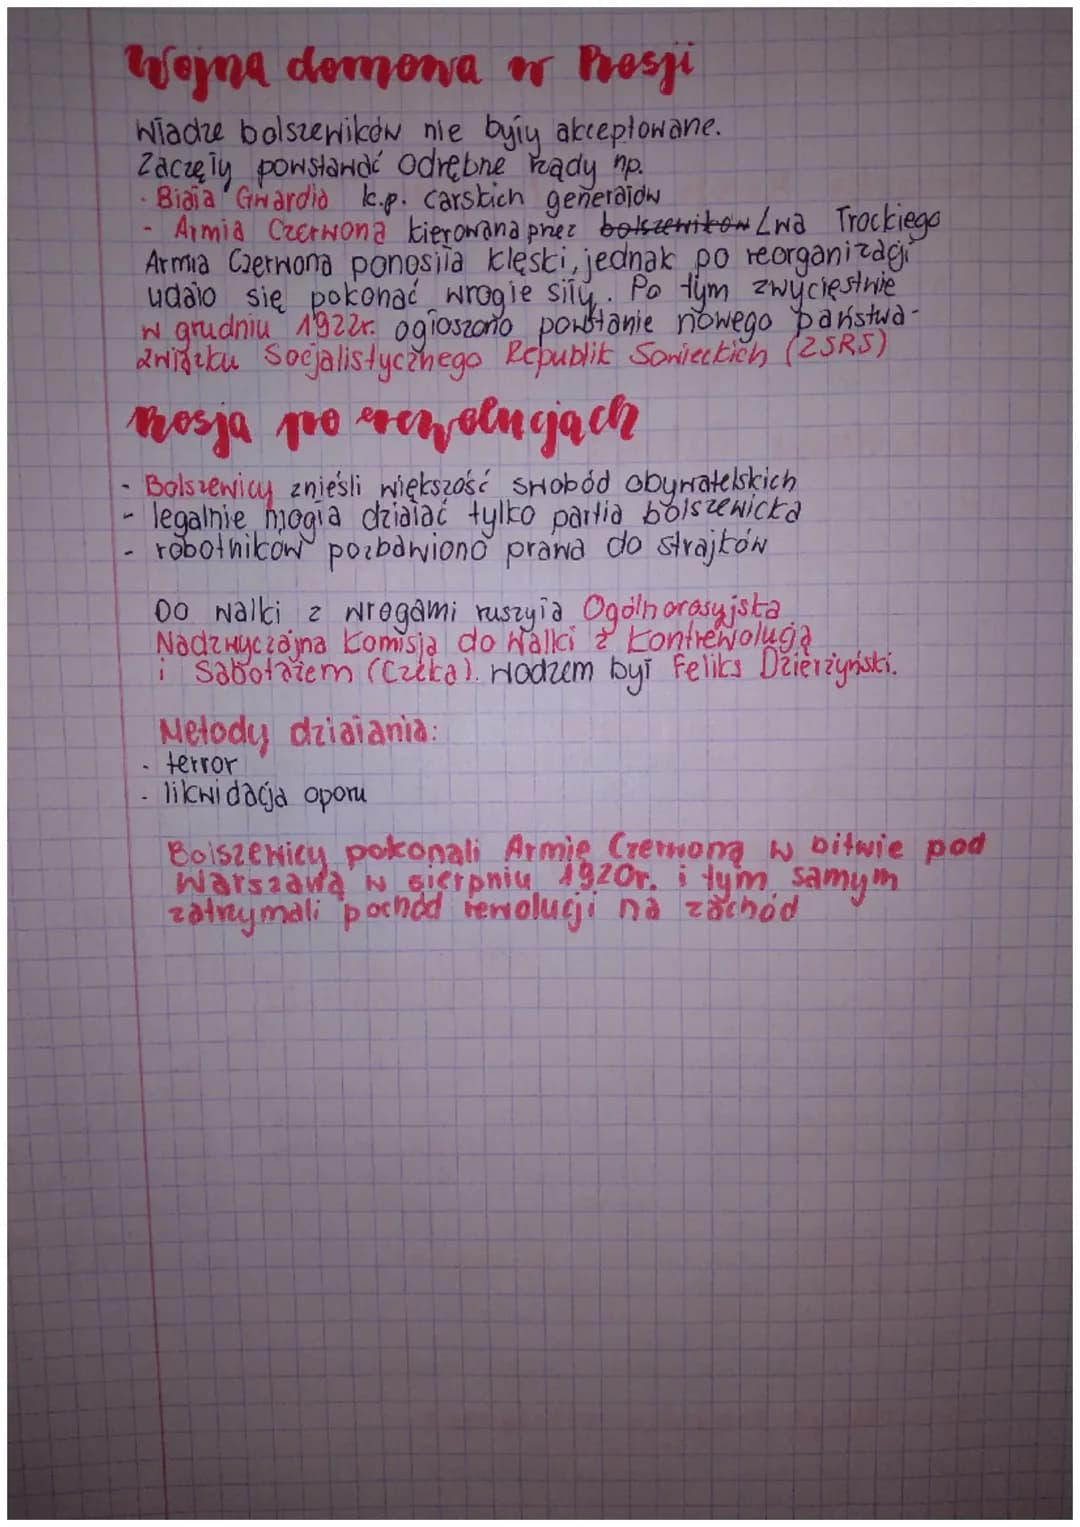 Wojna domowa w Rosji
Władze bolszewików nie były akceptowane.
Zaczęły powstawać odrębne rządy np.
· Biała Gwardia k.p. carskich generałów
- Armia Czerwona kierowana przez bolszewików Lwa Trockiego
Armia Czerwona ponosiła klęski, jednak po reorganizacji
udało się pokonać wrogie siły. Po tym zwycięstwie
w grudniu 1922r. ogłoszono powstanie nowego państwa-
Związku Socjalistycznego Republik Sowieckich (ZSRS)
Rosja po rewolucjach
- Bolszewicy znieśli większość swobód obywatelskich
- legalnie mogła działać tylko partia bolszewicka
- robotników pozbawiono prawa do strajków
Do walki z wrogami ruszyła Ogólnorosyjska
Nadzwyczajna Komisja do Walki z Kontrewolucją
i Sabotażem (Czeka). Wodzem był Feliks Dzierżyński.
Metody działania:
- terror
- likwidacja oporu
Bolszewicy pokonali Armię Czerwoną w bitwie pod
Warszawą w sierpniu 1920r. i tym samym
zatrzymali pochód rewolucji na zachód